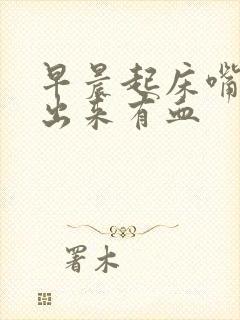 早晨起床嘴
出来有血
署木